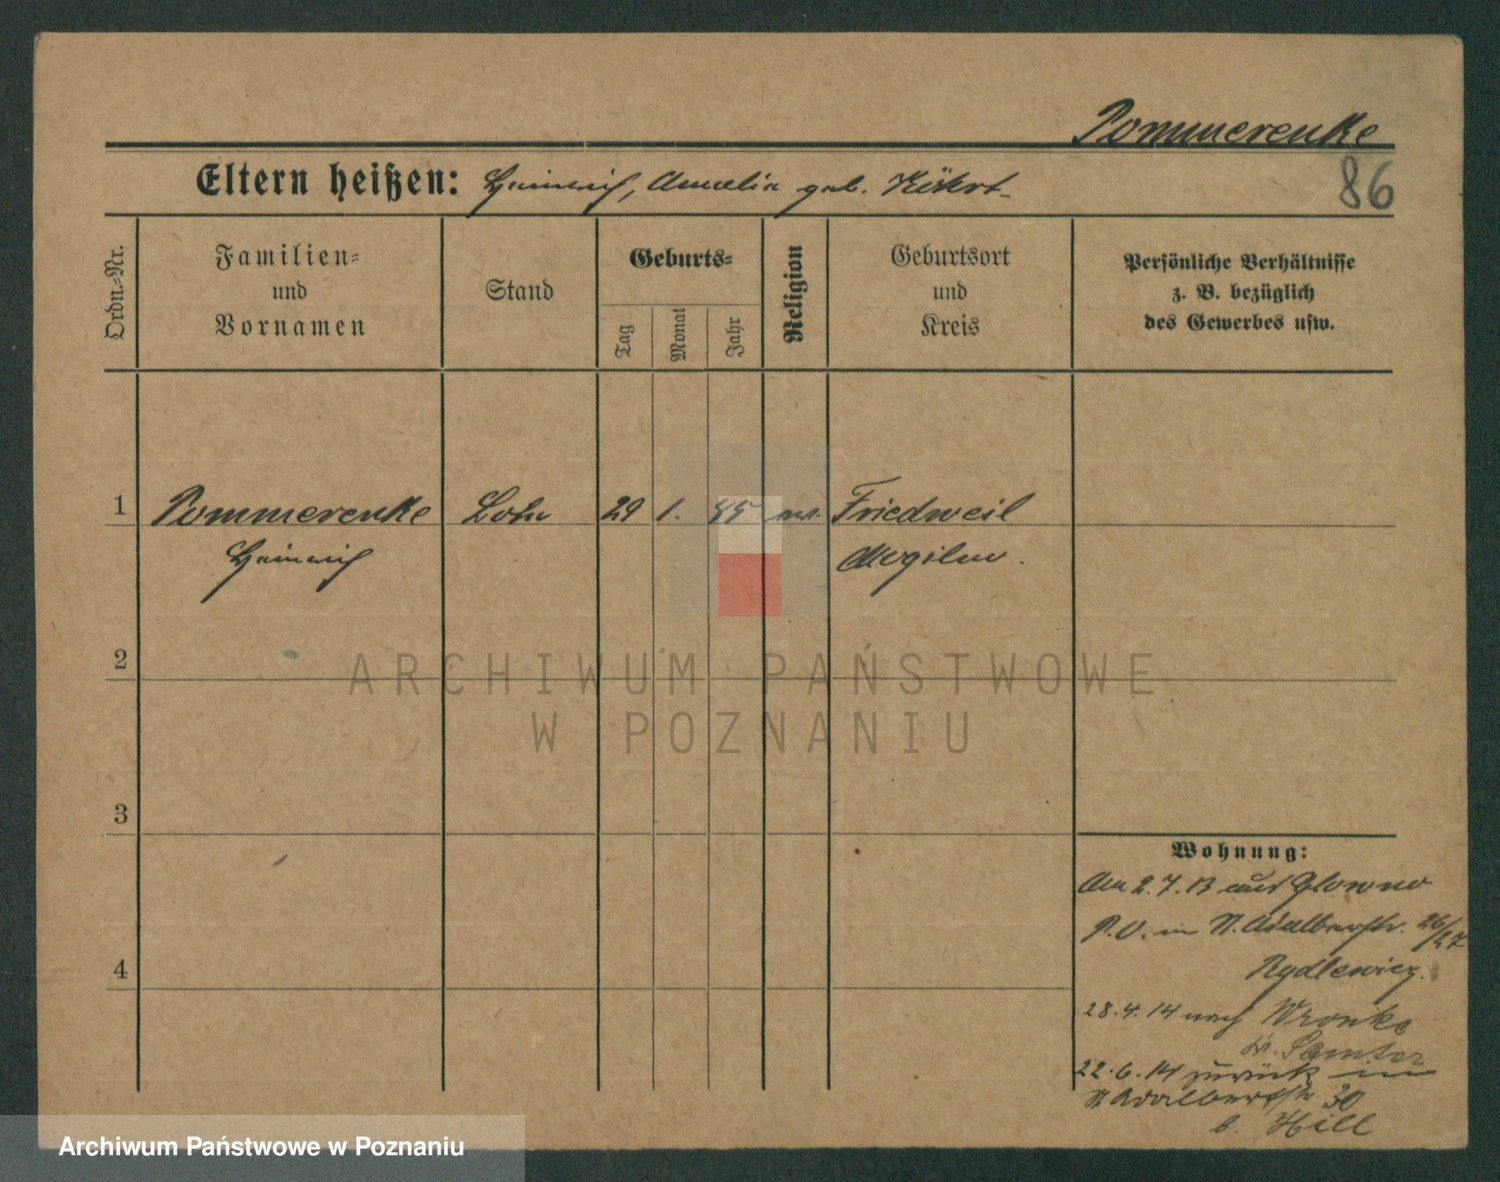 Pommerenke
86
Eltern heißen: Heinrich, Amalie geb.
Ordn.-Nr.
Familien-
und
Vornamen
Stand
Geburts-
Tag
Monat
Jahr
Religion
Geburtsort
und
Kreis
Persönliche Verhältnisse
z. B. bezüglich
des Gewerbes usw.
1 Pommerenke 29 1. 95 Friedweil
Heinrich Mogilno.
2
3
4
ARCHIWUM PAŃSTWOWE
W POZNANIU
Wohnung:
Am 2.7.13 aus Glowno
P.O. in St. Adalbertstr. 26/27
Rydlewicz.
28.4.14 nach Wronke
Kr. Samter
22.6.14 zurück in
St Adalbertstr 30
b. Hill
Archiwum Państwowe w Poznaniu